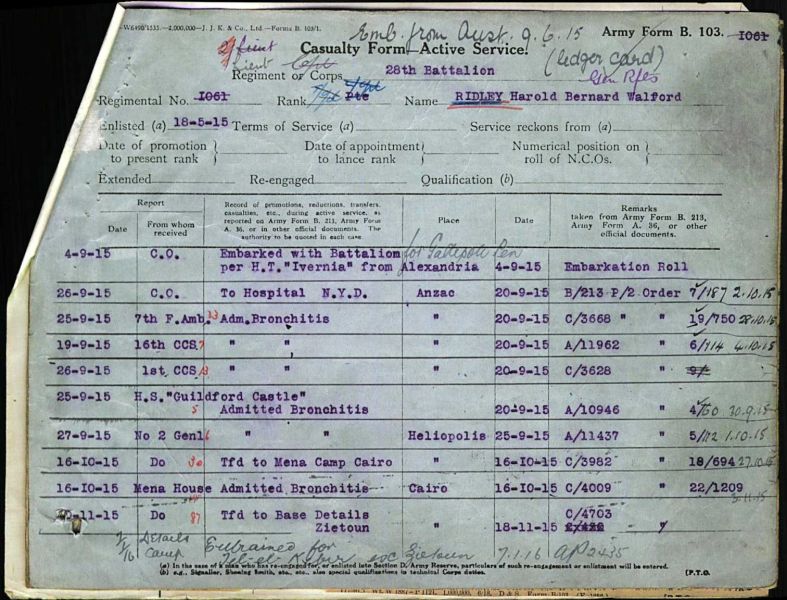 W6490/1535.—2,000,000—J. J. K. & Co., Ltd—Forms B. 103/1.
Emb. from Aust. 9.6.15
Army Form B. 103. 1061
2/Lieut
Casualty Form—Active Service.
(ledger card)
Lieut Capt
Regiment or Corps 28th Battalion
Regimental No. 1061 Rank Pte Name RIDLEY Harold Bernard Walford
Enlisted (a) 18-5-15 Terms of Service (a) Service reckons from (a)
Date of promotion to present rank } Date of appointment to lance rank } Numerical position on roll of N.C.Os. }
Extended Re-engaged Qualification (b)
Report
Date From whom received
Record of promotions, reductions, transfers, casualties, etc., during active service, as reported on Army Form B. 213, Army Form A. 36, or in other official documents. The authority to be quoted in each case.
Place Date
Remarks taken from Army Form B. 213, Army Form A. 36, or other official documents.
4-9-15 C.O. Embarked with Battalion for Gallipoli Pen
per H.T."Ivernia" from Alexandria 4-9-15 Embarkation Roll
26-9-15 C.O. To Hospital N.Y.D. Anzac 20-9-15 B/213 P/2 Order 7/187 2.10.15
25-9-15 7th F.Amb. 13 Adm.Bronchitis " 20-9-15 C/3668 " " 19/750 28.10.15
19-9-15 16th CCS 7 " " " 20-9-15 A/11962 " 6/714 4.10.15
26-9-15 1st CCS 13 " " " 20-9-15 C/3628 " 9/
25-9-15 H.S."Guildford Castle"
5 Admitted Bronchitis 20-9-15 A/10946 " 4/750 30.9.15
27-9-15 No 2 Genl 6 " " Heliopolis 25-9-15 A/11437 " 5/112 1.10.15
16-10-15 Do 30 Tfd to Mena Camp Cairo " 16-10-15 C/3982 " 18/694 27.10.15
16-10-15 Mena House Admitted Bronchitis Cairo 16-10-15 C/4009 " 22/1209
3.11.15
-11-15 Do 87 Tfd to Base Details C/4703
Zietoun " 18-11-15 "
Details Camp Entrained for Tel-el-Kebir exc Zietoun 7.1.16 AP2435
(a) In the case of a man who has re-engaged for, or enlisted into Section D, Army Reserve, particulars of such re-engagement or enlistment will be entered.
(b) e.g., Signaller, Shoeing Smith, etc., etc., also special qualifications in technical Corps duties. [P.T.O.